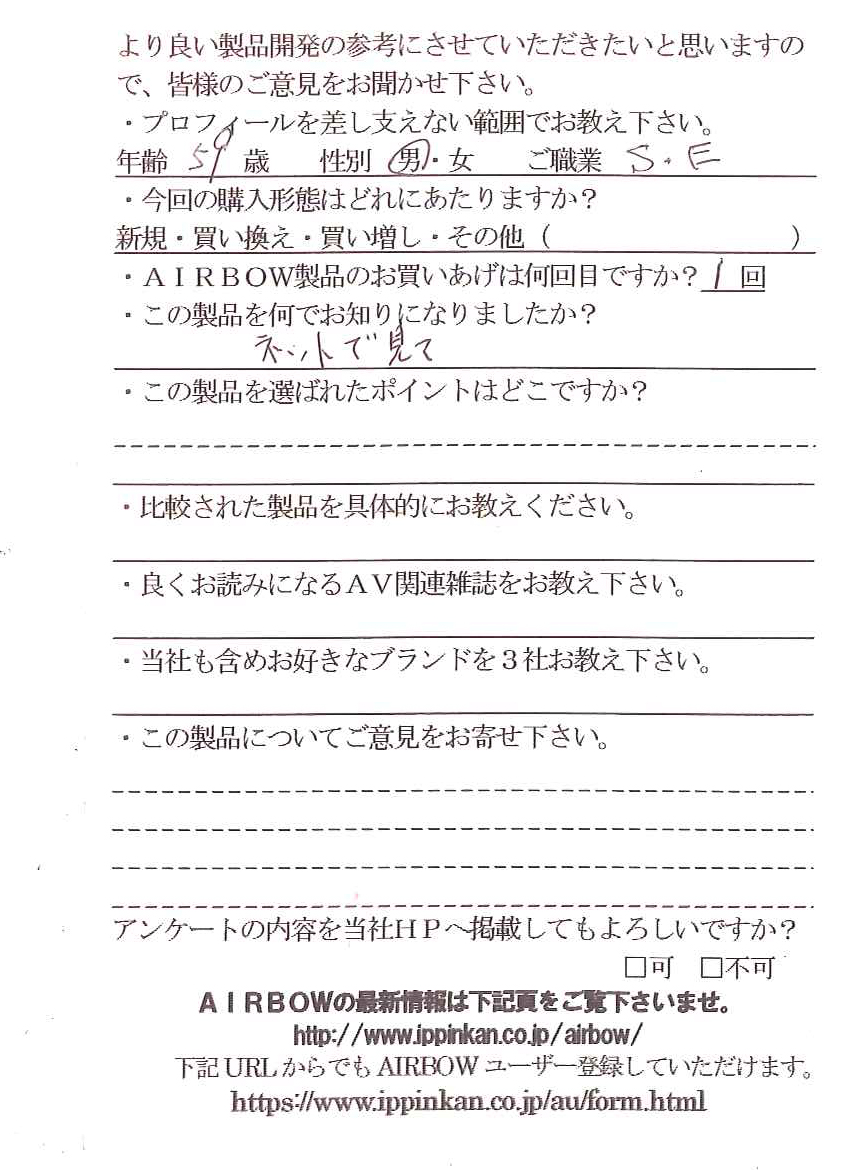 より良い製品開発の参考にさせていただきたいと思いますの
で、皆様のご意見をお聞かせ下さい。
・プロフィールを差し支えない範囲でお教え下さい。
年齢 59 歳 性別 男・女 ご職業 S.E
・今回の購入形態はどれにあたりますか?
新規・買い換え・買い増し・その他 ( )
・AIRBOW製品のお買いあげは何回目ですか? 1 回
・この製品を何でお知りになりましたか?
ネットで見て
・この製品を選ばれたポイントはどこですか?
・比較された製品を具体的にお教えください。
・良くお読みになるAV関連雑誌をお教え下さい。
・当社も含めお好きなブランドを3社お教え下さい。
・この製品についてご意見をお寄せ下さい。
アンケートの内容を当社HPへ掲載してもよろしいですか?
□可 □不可
AIRBOWの最新情報は下記頁をご覧下さいませ。
http://www.ippinkan.co.jp/airbow/
下記 URL からでも AIRBOW ユーザー登録していただけます。
https://www.ippinkan.co.jp/au/form.html